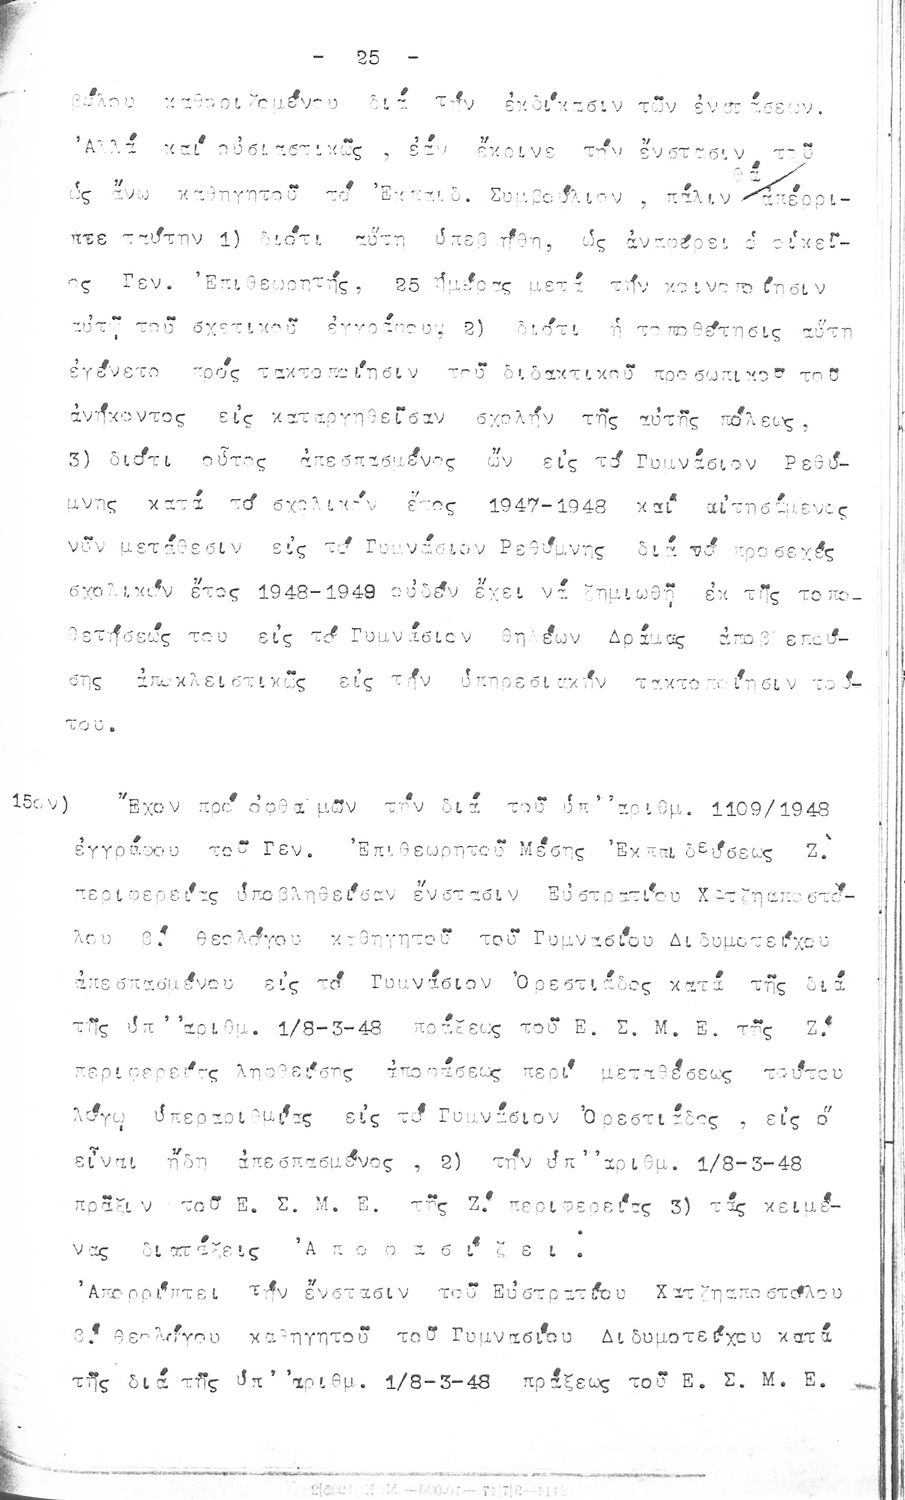 - 25 -
βύλου καθοριζομένου διά τήν ἐκδίκασιν τῶν ἐνστάσεων.
'Αλλά καί οὐσιαστικῶς , ἐάν ἔκρινε τήν ἔνστασιν τοῦ
θά
ὡς ἄνω καθηγητοῦ τό 'Εκπαιδ. Συμβούλιον , πάλιν ἀπέρρι-
πτε ταύτην 1) διότι αὕτη ὑπεβλήθη, ὡς ἀναφέρει ὁ οἰκεῖ-
ος Γεν. 'Επιθεωρητής, 25 ἡμέρας μετά τήν κοινοποίησιν
αὐτῷ τοῦ σχετικοῦ ἐγγράφου, 2) διότι ἡ τοποθέτησις αὕτη
ἐγένετο πρός τακτοποίησιν τοῦ διδακτικοῦ προσωπικοῦ τοῦ
ἀνήκοντος εἰς καταργηθεῖσαν σχολήν τῆς αὐτῆς πόλεως,
3) διότι οὗτος ἀπεσπασμένος ὤν εἰς τό Γυμνάσιον Ρεθύ-
μνης κατά τό σχολικόν ἔτος 1947-1948 καί αἰτησάμενος
νῦν μετάθεσιν εἰς τό Γυμνάσιον Ρεθύμνης διά τό προσεχές
σχολικόν ἔτος 1948-1949 οὐδέν ἔχει νά ζημιωθῇ ἐκ τῆς τοπο-
θετήσεώς του εἰς τό Γυμνάσιον θηλέων Δράμας ἀποβλεπού-
σης ἀποκλειστικῶς εἰς τήν ὑπηρεσιακήν τακτοποίησιν τού-
του.
15ον) Ἔχον πρό ὀφθαλμῶν τήν διά τοῦ ὑπ''αριθμ. 1109/1948
ἐγγράφου τοῦ Γεν. 'Επιθεωρητοῦ Μέσης 'Εκπαιδεύσεως Ζ.'
περιφερείας ὑποβληθεῖσαν ἔνστασιν Εὐστρατίου Χατζηαποστό-
λου β.' θεολόγου καθηγητοῦ τοῦ Γυμνασίου Διδυμοτείχου
ἀπεσπασμένου εἰς τό Γυμνάσιον Ὀρεστιάδος κατά τῆς διά
τῆς ὑπ''αριθμ. 1/8-3-48 πράξεως τοῦ Ε. Σ. Μ. Ε. τῆς Ζ.'
περιφερείας ληφθείσης ἀποφάσεως περί μεταθέσεως τούτου
λόγῳ ὑπεραριθμίας εἰς τό Γυμνάσιον Ὀρεστιάδος , εἰς ὅ
εἶναι ἤδη ἀπεσπασμένος , 2) τήν ὑπ''αριθμ. 1/8-3-48
πρᾶξιν τοῦ Ε. Σ. Μ. Ε. τῆς Ζ.' περιφερείας 3) τάς κειμέ-
νας διατάξεις 'Α π ο φ α σ ί ζ ε ι :
'Απορρίπτει τήν ἔνστασιν τοῦ Εὐστρατίου Χατζηαποστόλου
β.' θεολόγου καθηγητοῦ τοῦ Γυμνασίου Διδυμοτείχου κατά
τῆς διά τῆς ὑπ''αριθμ. 1/8-3-48 πράξεως τοῦ Ε. Σ. Μ. Ε.